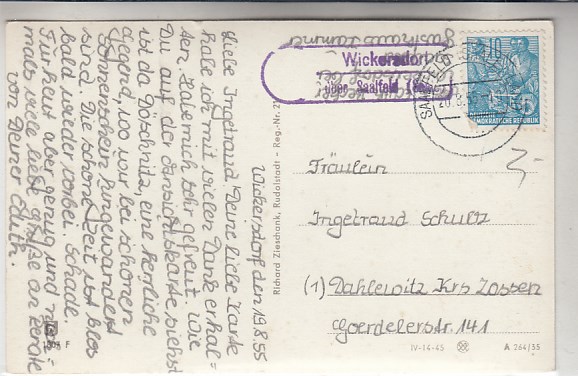 Wickersdorf den 19.8.55
Liebe Ingetraud! Deine liebe Karte
habe ich mit vielen Dank erhal=
ten. Habe mich sehr gefreut. Wie
Du auf der Ansichtskarte siehst
ist da Döschnitz, eine herrliche
Gegend, wo wir bei schönem
Sonnenschein hingewandert
sind. Die schöne Zeit ist blos
bald wieder vorbei. Schade.
Für heut aber genug und noch=
mals viele liebe Grüße an
von Deiner Edith.
1004 F
Richard Zieschank, Rudolstadt - Reg.-Nr. 2
Gasthaus
Wickersdorf
über Saalfeld (Saale)
SAALFELD
20.8.55
DEUTSCHE DEMOKRATISCHE REPUBLIK
Fräulein
Ingetraud Schultz
(1) Dahlewitz Krs Zossen
Goerdelerstr. 141
IV-14-45
A 264/55